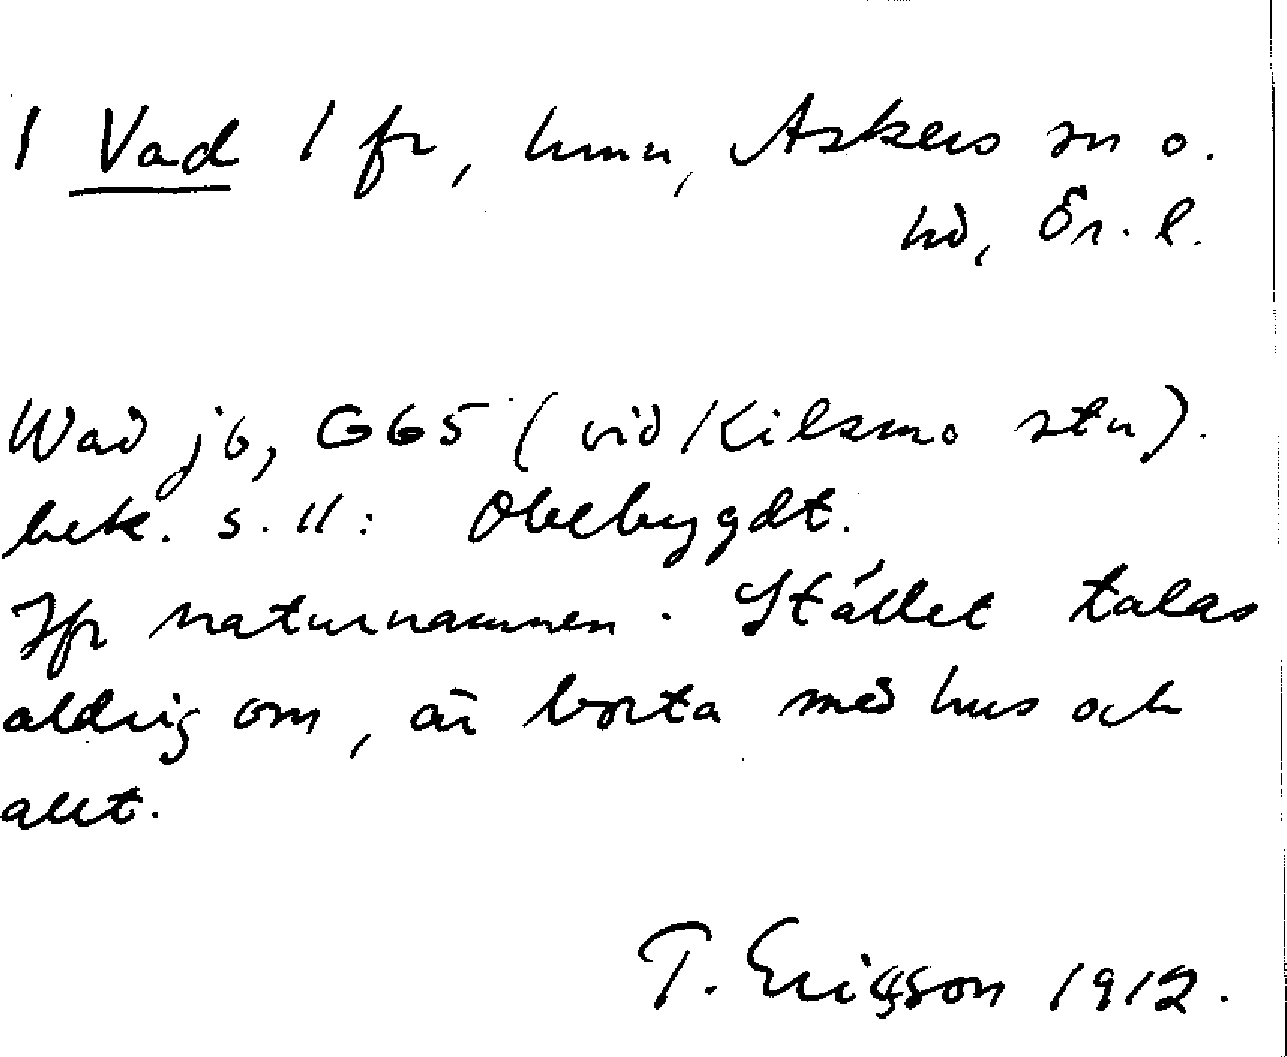 1 Vad 1 fr, hmn, Askers sn o.
hd, Ör. l.
Wad jb, G65 (vid Kilsmo stn).
bek. s. 11: Obebygdt.
Jfr naturnamnen. Stället talas
aldrig om, är borta med hus och
allt.
T. Ericsson 1912.